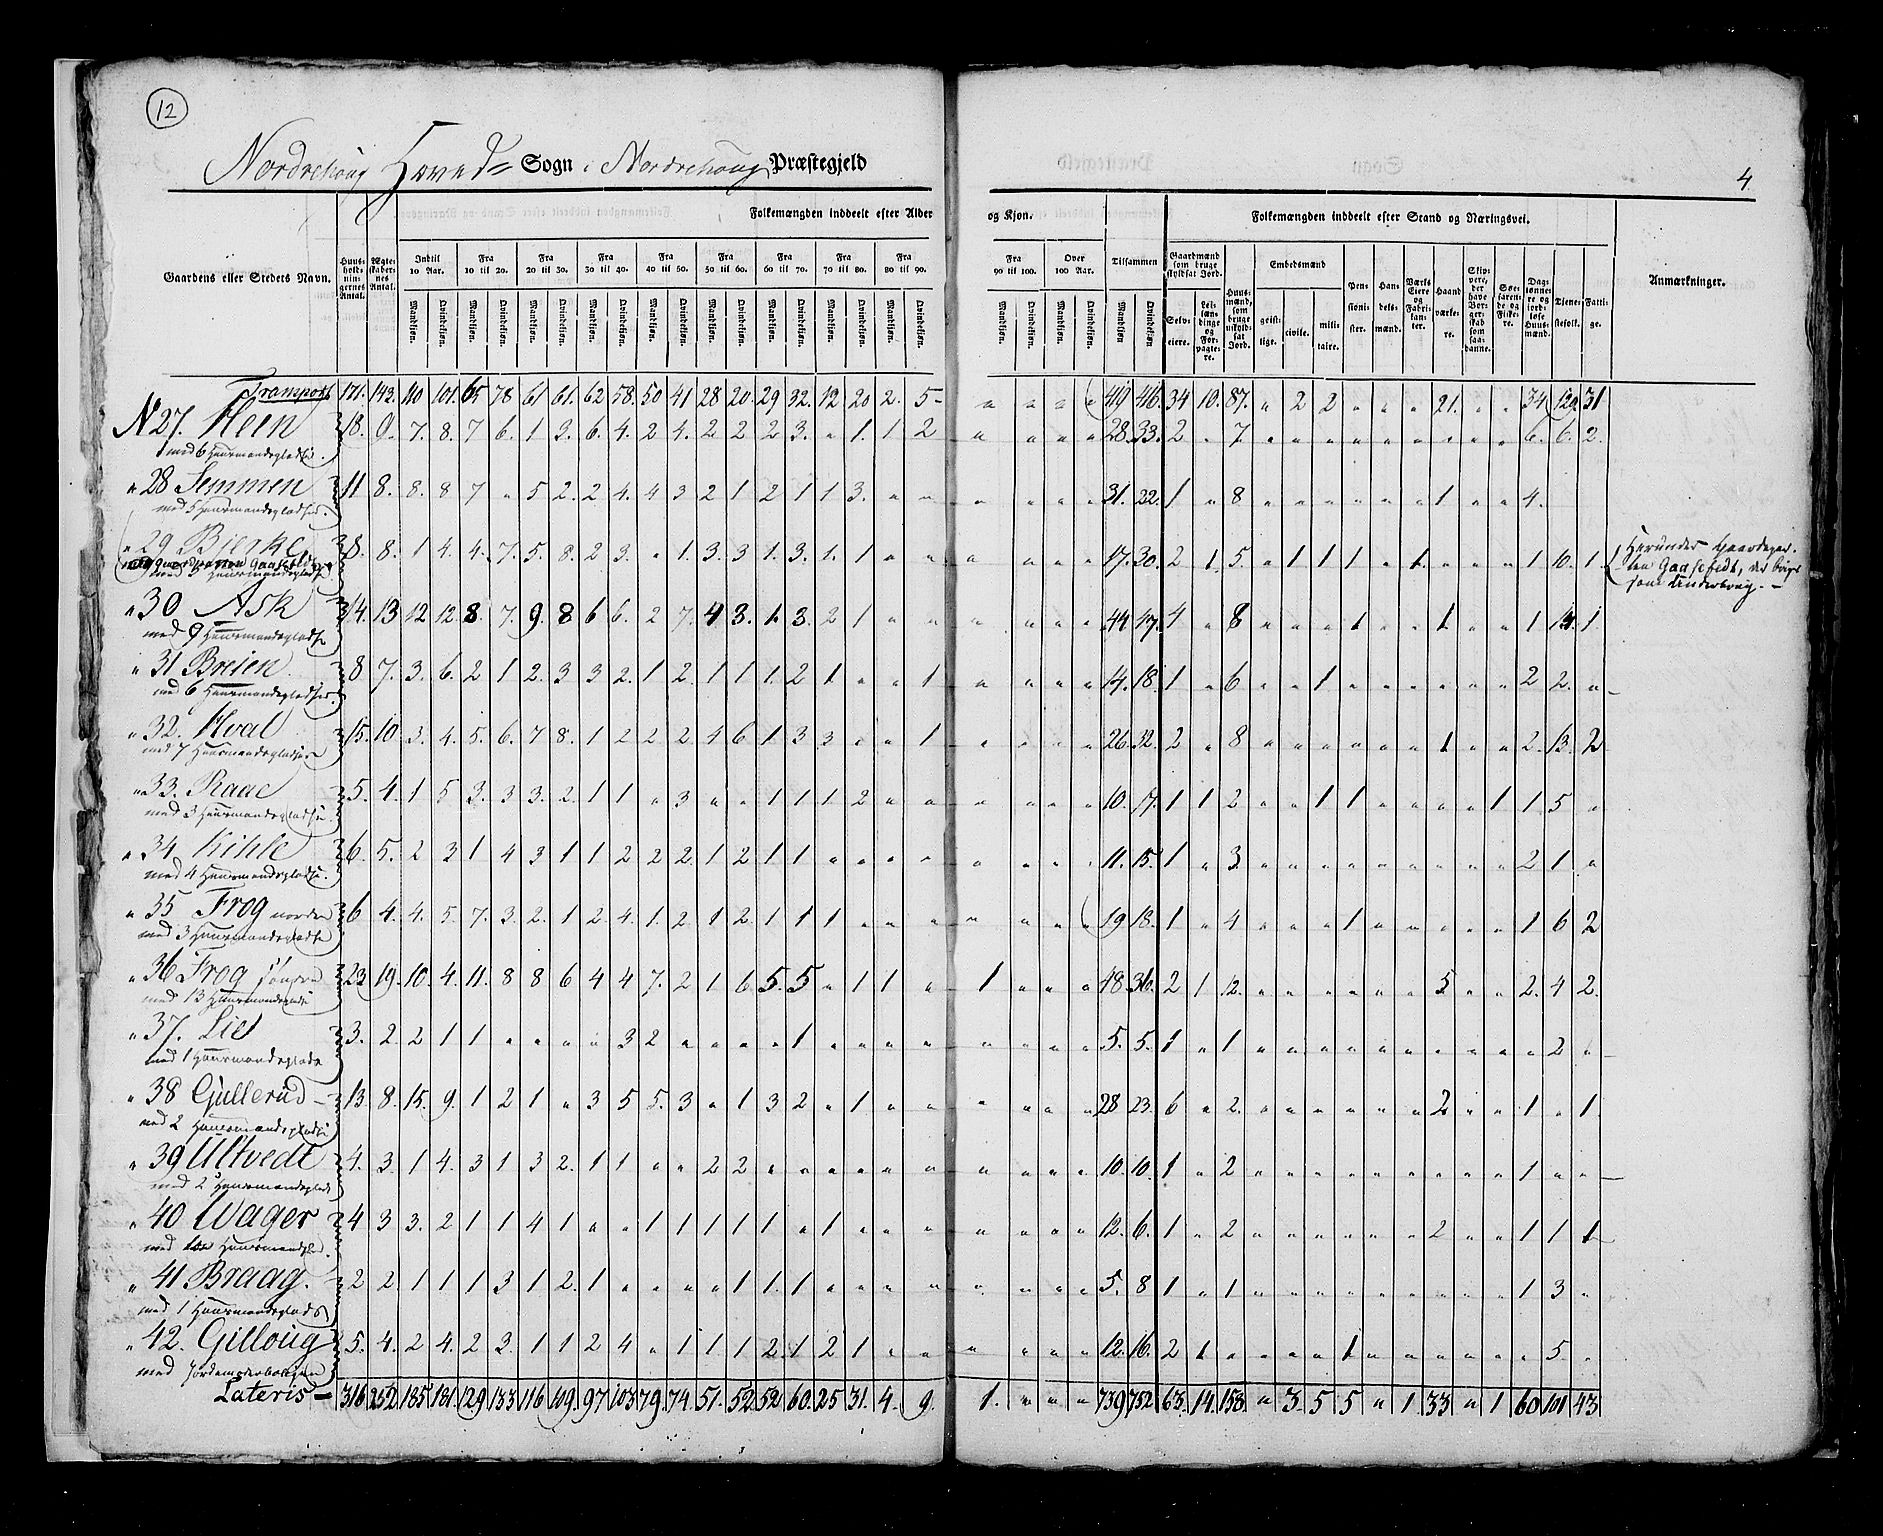 12
Nordrehoug Hoved= Sogn i Nordrehoug Præstegjeld
4
Folkemængden inddeelt efter Alder og Kjøn.
Folkemængden inddeelt efter Stand og Næringsvei.
Gaardens eller Stedets Navn.
Huus-holdningernes Antal.
Ægteskabernes Antal.
Indtil 10 Aar.
Fra 10 til 20.
Fra 20 til 30.
Fra 30 til 40.
Fra 40 til 50.
Fra 50 til 60.
Fra 60 til 70.
Fra 70 til 80.
Fra 80 til 90.
Fra 90 til 100.
Over 100 Aar.
Tilsammen
Mandkjøn. Qvindekjøn.
Gaardmænd som bruge skyldsat Jord.
Selveiere.
Leilændinge og Forpagtere.
Huusmænd, som bruge uskyldsat Jord.
Embedsmænd
geistlige.
civile.
militaire.
Pensionister.
Handelsmænd.
Værks Eiere og Fabrikanter.
Haandværkere.
Skippere, der have Borgerskab som saadanne.
Søefarende og Fiskere.
Daglønnere og jordløse Huusmænd.
Tjenestefolk.
Fattige.
Anmærkninger.
Transport 171. 143. 110 101. 65 78 61 61. 62 58. 50 41 28 20. 29 32. 12 20 2. 5 " " " " 419 416. 34 10. 87. " 2 2 " " " 21. " " 34 129. 31
N 27. Heen 18. 9. 7. 8. 7 6. 1 3. 6. 4. 2 4. 2 2 2 3. " 1. 1 2 " " " " 28. 33. 2 " 7 " " " " " " " " " 6. 6. 2.
med 6 Huusmandspladse.
" 28 Semmen 11 8. 8. 8 7 " 5 2. 2 4. 4 3 2 1 2 1 1 3. " " " " " " 31. 22. 1 " 8 " " " " " " 1 " " 4.
med 5 Huusmandspladse.
" 29 Bjerke 8. 8. 1 4. 4. 7. 5. 8. 2 3. " 1. 3. 3 1. 3. 1. 1 " " " " " " 17. 30. 2 1. 5. " 1 1 1 " 1. " " " 1 10. 1
Herunder Gaardepar-
ten Gaasefedt, der brúges
som Underbrúg. -
" 30 Ask 14. 13 12 12. 8 7. 9. 8 6 6. 2 7. 4 3. 1. 3. 2 1 " " " " " " 44 47. 4 " 8 " " " 1 " " 1 " " 1 14. 1.
med 9 Huusmandspladse
" 31 Breien 8 7. 3. 6. 2 1 2. 3 3 2. 1 2. 1 1 1. 2 1 " " 1 " " " " 14. 18. 1 " 6 " " 1 " " " " " " 2 2. "
med 6 Huusmandspladse.
" 32. Hval 15. 10. 3. 4. 5. 6. 7 8. 1 2 2 2 4 6 1 3 3 " " 1 " " " " 26. 32. 2 " 8 " " " " " " 1 " " 2. 13. 2
med 7 Huusmandspladse
" 33. Raae 5. 4. 1 5 3. 3 3. 2. 1 1 " 3 " " 1 1 1 2 " " " " " " 10. 17. 1 1 2 " " 1 1 " " " " 1 1 5 "
med 3 Huusmandspladse.
" 34. Kihle 6. 5. 2 3 1 4 3 1 1 2 2 2. 1 2 1 1 " " " " " " " " 11. 15. 1 " 3 " " " " " " " " " 2 1 "
med 4 Huusmandspladse.
" 35 Frog nordre 6 4. 4. 5. 7. 3. 2. 1 2. 4. 1. 2 1 2. 1 1 1 " " " " " " " 19 18. 1 " 4 " " " 1 " " " " " 1 6 2
med 3 Huusmandspladse
" 36 Frog søndre 23 19. 10. 4. 11. 8 8 6 4 4 7. 2 1 6 5. 5 " 1 1 " 1 " " " 48. 36. 2 1 12. " " " " " " 5 " " 2. 4 2.
med 13 Huusmandspladse
" 37. Lie 3. 2. 2 1 1 " " " " 3 2 " " " " 1 " " " " " " " " 5. 5. 1 " 1 " " " " " " " " " " 2 "
med 1 Huusmandsplads
" 38 Gullerud 13. 8. 15. 9. 1 2 1 " 3 5 5. 3 " 1 3 2 " 1 " " " " " " 28 23. 6 " 2. " " " " " " 2 " " 1 " 1.
med 2 Huusmandspladse
" 39 Ultvedt 4. 3. 1 4. 3 1 3 2. 1 1 " " 2 2 " " " " " " " " " " 10. 10. 1 " 2 " " " " " " " " " 1 " "
med 2 Huusmandsplads
" 40 Wager 4 3 3. 2 1 1 4 1 " " 1 1 1 1 1 " 1 " " " " " " " 12. 6. 1 " 2 " " " " " " 2 " " 1 1 1
" 41 Braag. 2 2. 1 1 1 3 1 2. 1 " " " " 1 1. 1 " " " " " " " " 5. 8 1 " 1 " " " " " " " " " 1 3 "
med 1 Huusmandsplads
" 42. Gilloug 5. 4. 2 4. 2 3. 1 1 2 4 " 1 1 1 2. 1 2 1 " " " " " " 12. 16. 2 1 " " " " 1 " " " " " " 5. "
Lateris - 316 252. 185. 181. 129. 133 116 109. 97 103 79. 74. 51. 52. 52. 60. 25 31. 4. 9. 1. " " " 739 752 63. 14. 158. " 3. 5 5 " 1 33 " 1 60 101 43